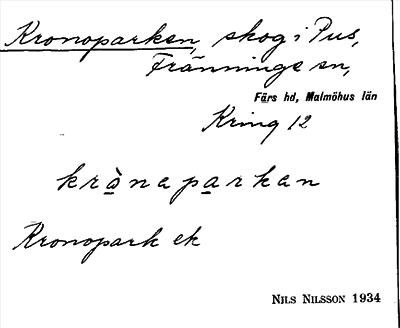 Kronoparken, skog i Pus,
Tränninge sn,
Färs hd, Malmöhus län
Kring 12
krònaparkan
Kronopark ek
NILS NILSSON 1934